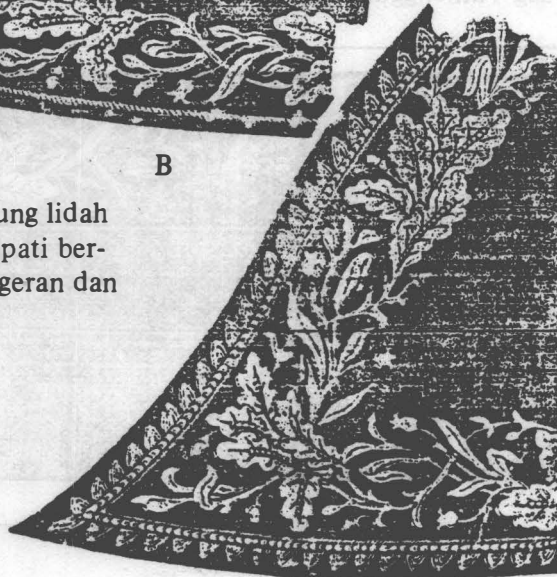 B
ung lidah
pati ber-
geran dan